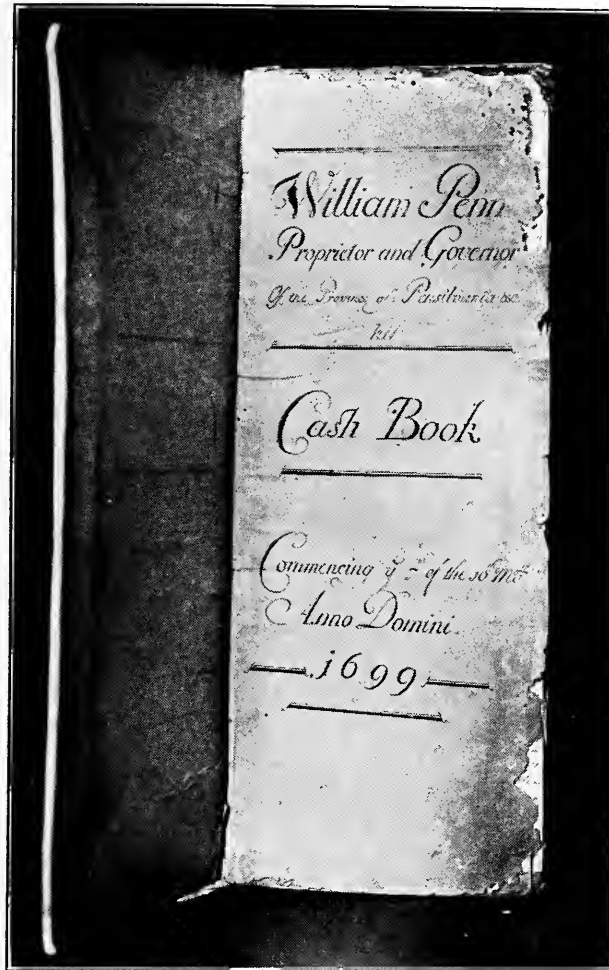 William Penn
Proprietor and Governor
Of the Province of Pensilvania &c
his
Cash Book
Commencing yᵉ of the 10th Mo
Anno Domini
1699